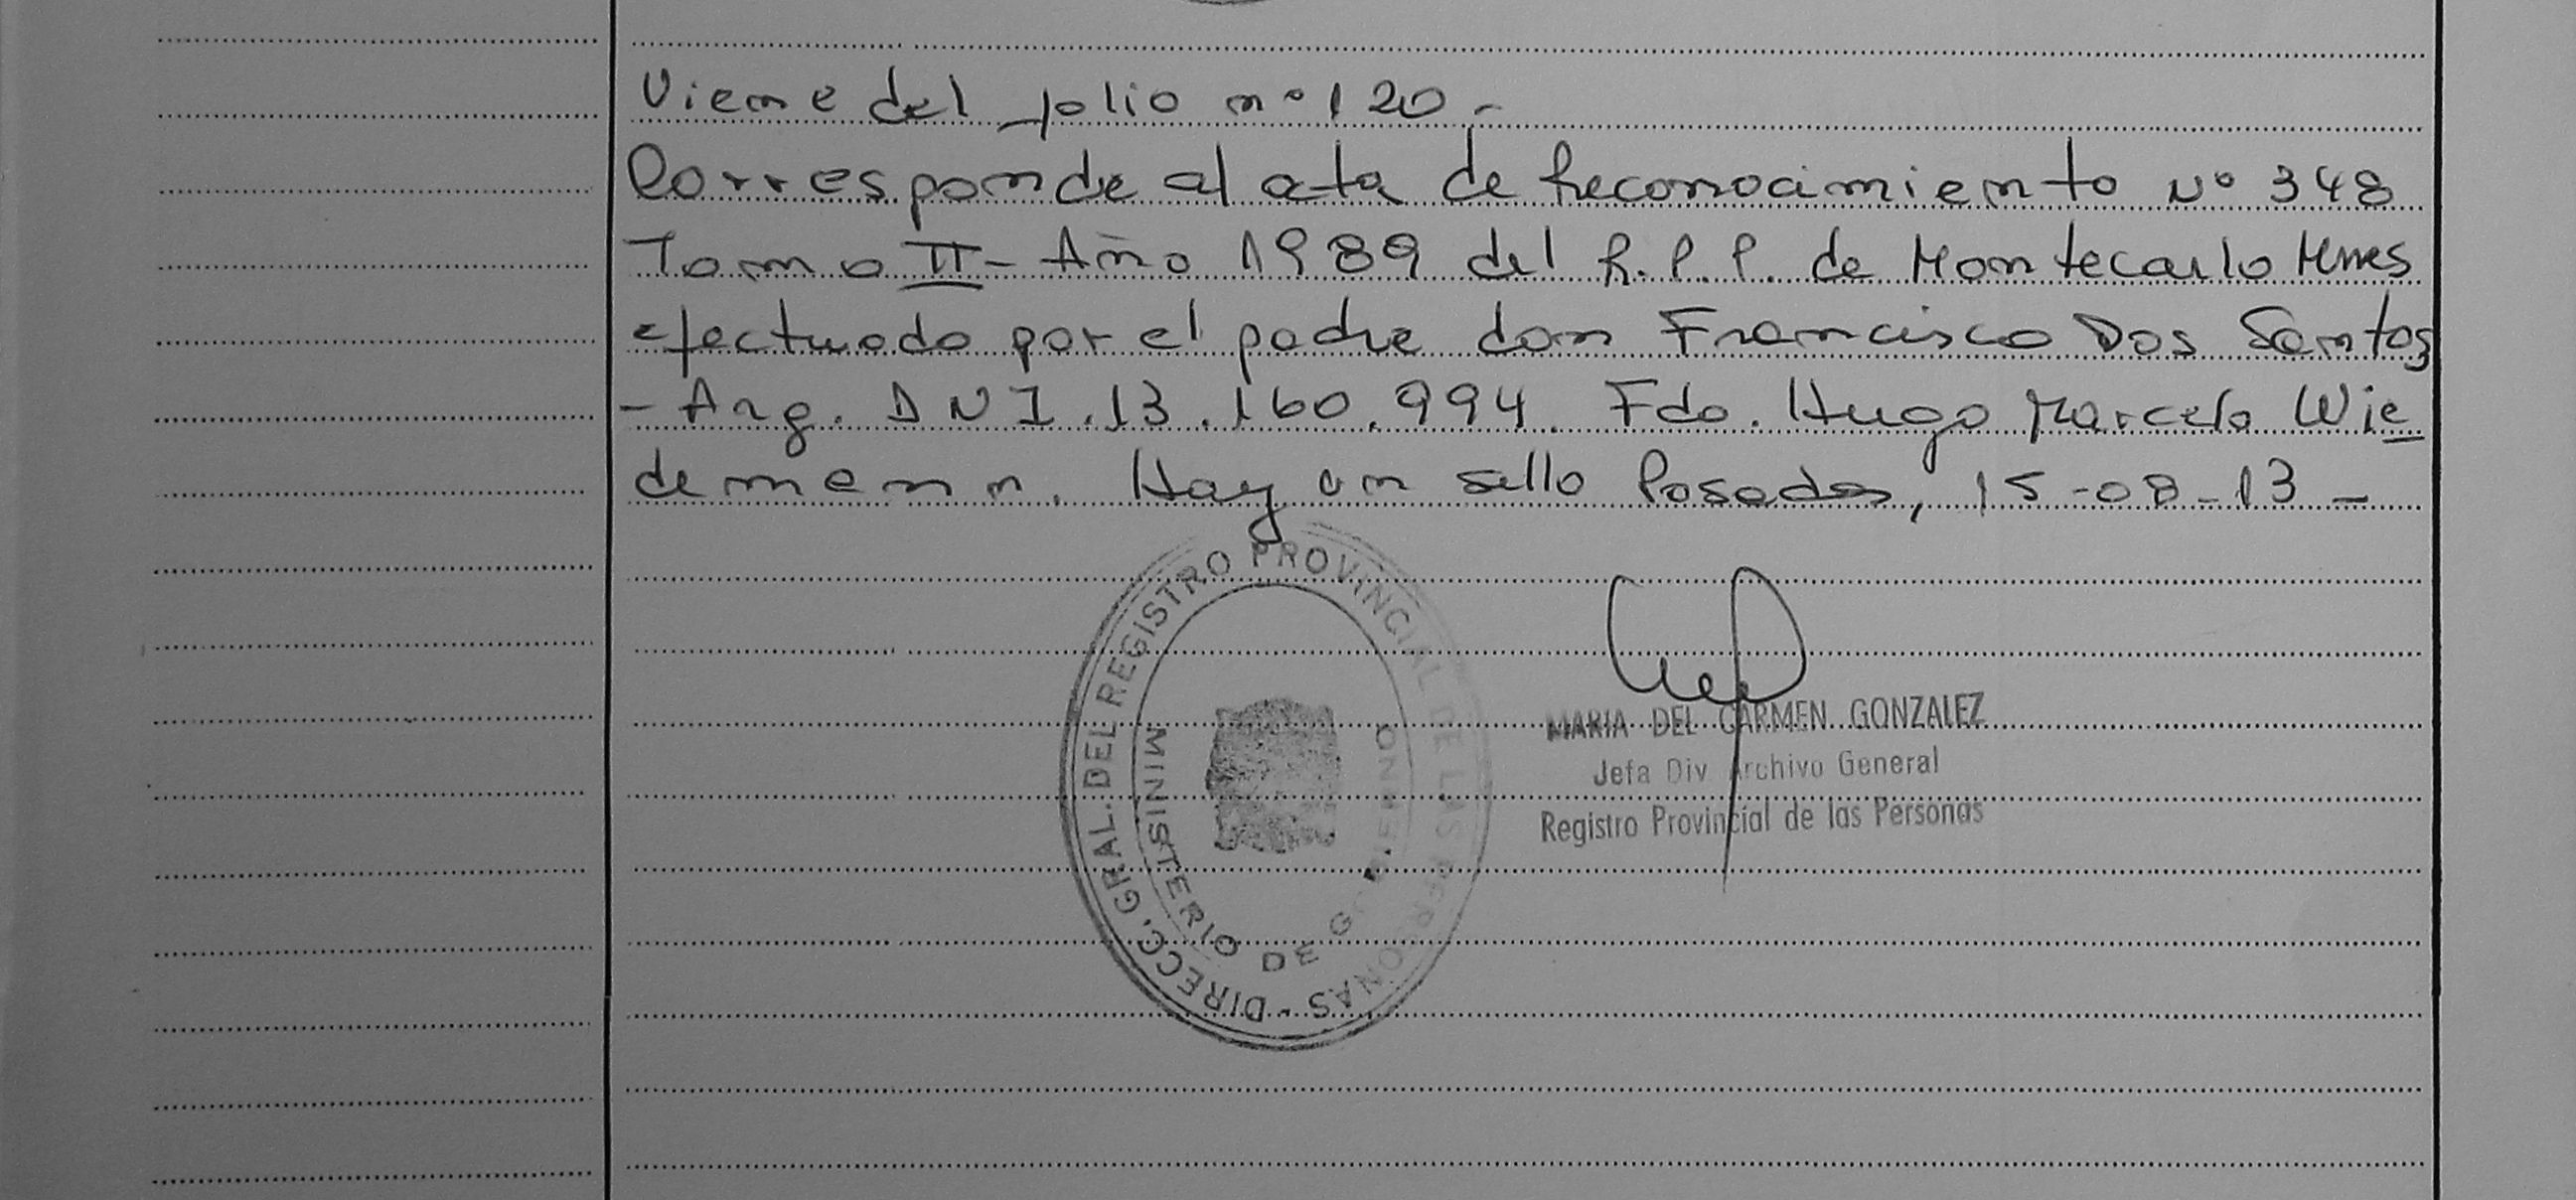 Viene del folio nº 120 -
Corresponde al ata de Reconocimiento Nº 348
Tomo II - Año 1989 del R.P.P. de Montecarlo Mnes
efectuado por el padre don Francisco Dos Santos
- Arg. DNI. 13.160.994. Fdo. Hugo Marcelo Wie
demann. Hay un sello Posadas, 15-08-13 -
DIRECC. GRAL. DEL REGISTRO PROVINCIAL DE LAS PERSONAS -
MINISTERIO DE GOBIERNO
MARIA DEL CARMEN GONZALEZ
Jefa Div Archivo General
Registro Provincial de las Personas